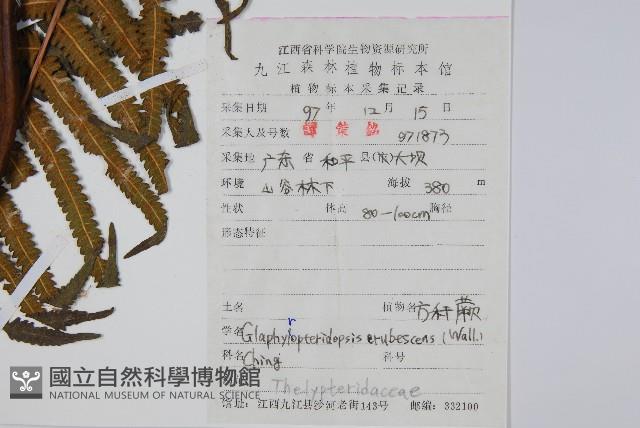 江西省科学院生物资源研究所
九江森林植物标本馆
植物标本采集记录
采集日期 97 年 12 月 15 日
采集人及号数 谭策铭 971873
采集地 广东 省 和平 县(市) 大坝
环境 山谷林下 海拔 380 m
性状 体高 80-100cm 胸径
形态特征
土名 植物名 方秆蕨
学名 Glaphyropteridopsis erubescens (Wall.)
科名 Ching 科号
Thelypteridaceae
馆址：江西九江县沙河老街143号 邮编：332100
國立自然科學博物館
NATIONAL MUSEUM OF NATURAL SCIENCE